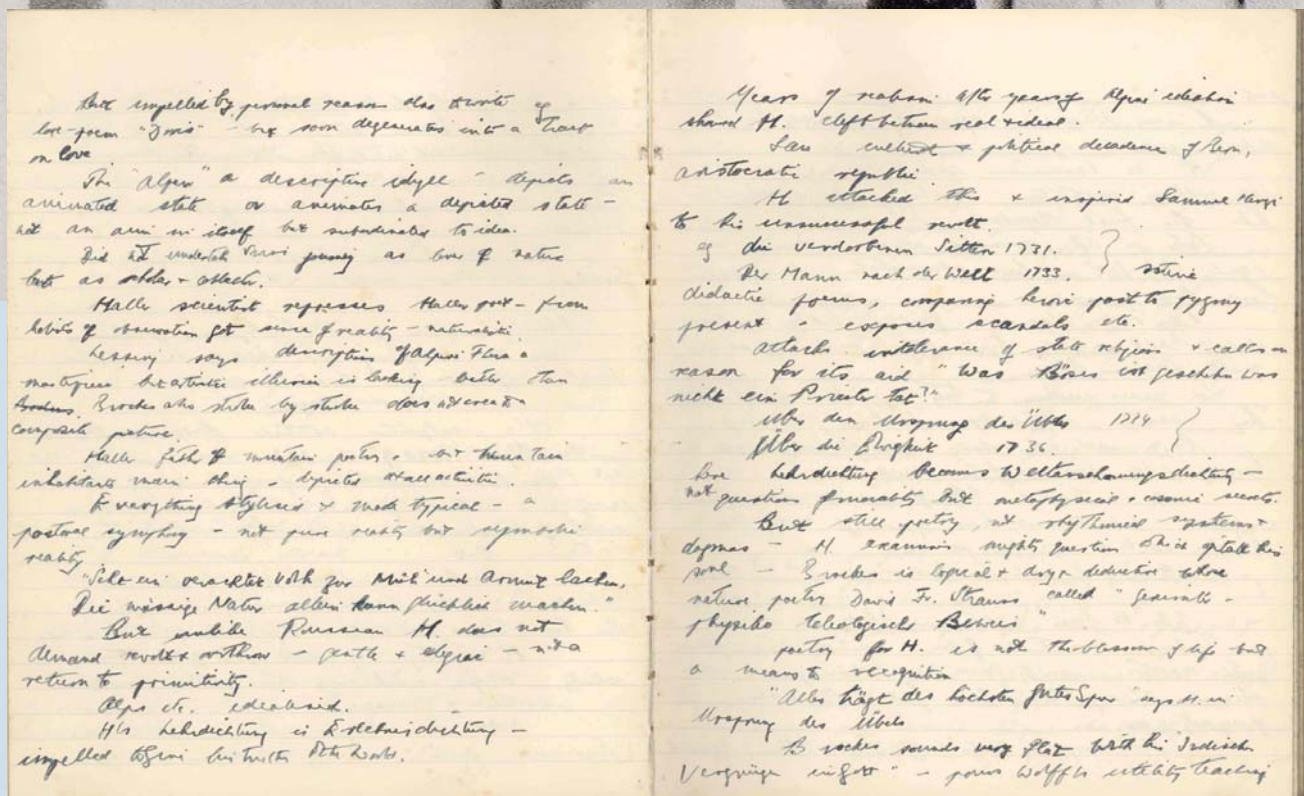 But impelled by personal reason also to write eg
love-poem "Doris" - but soon degenerates into a tract
on love.
The "Alpen" a descriptive idyll - depicts an
animated state or animates a depicted state -
not an aim in itself but subordinated to idea.
Did not undertake Swiss journey as lover of nature
but as scholar +
Haller scientist represses Haller poet - from
habits of observation got sense of reality - naturalistic.
Lessing says description of Alpine Flora a
masterpiece but artistic illusion is lacking better than
Brockes also stroke by stroke does not create
composite picture.
Haller father of mountain poetry - but mountain
inhabitants main thing - depicted
Everything stylised + made typical - a
pastoral symphony - not pure reality but
reality
"Seht ein verachtet Volk zur Müh und Armut lachen,
Die mässige Natur allein kann glücklich machen."
But unlike Rousseau H. does not
demand revolt + overthrow - gentle + elegiac - not a
return to primitivity.
Alps etc. idealised.
His Lehrdichtung is Erlebnisdichtung -
impelled
Years of realism after years of Alpine idealism
showed H. cleft between real + ideal.
Saw cultural + political decadence of Bern,
aristocratic republic.
H attacked this + inspired Samuel Henzi
to his unsuccessful revolt.
eg die verdorbenen Sitten 1731.
Der Mann nach der Welt 1733. } satire
didactic poems, comparing heroic past to pygmy
present - exposes scandals etc.
attacks intolerance of state religion + calls on
reason for its aid "Was Böses ist geschehn was
nicht ein Priester tat?"
Über den Ursprung des Übels 1734 }
Über die Ewigkeit 1736.
here Lehrdichtung becomes Weltanschauungsdichtung -
not questions of morality but metaphysical + cosmic secrets.
But still poetry, not rhythmical systems +
dogmas - H. examines mighty question which his
soul - Brockes is logical + dry + deductive whose
nature poetry David Fr. Strauss called "gereimter -
physiko teleologischer Beweis"
poetry for H. is not the blossom of life but
a means to recognition
"Alles trägt des höchsten Gutes Spur" says H. in
Ursprung des Übels
Brockes sounds very flat with his "Irdisches
Vergnügen in Gott" - Wolff's utility teaching